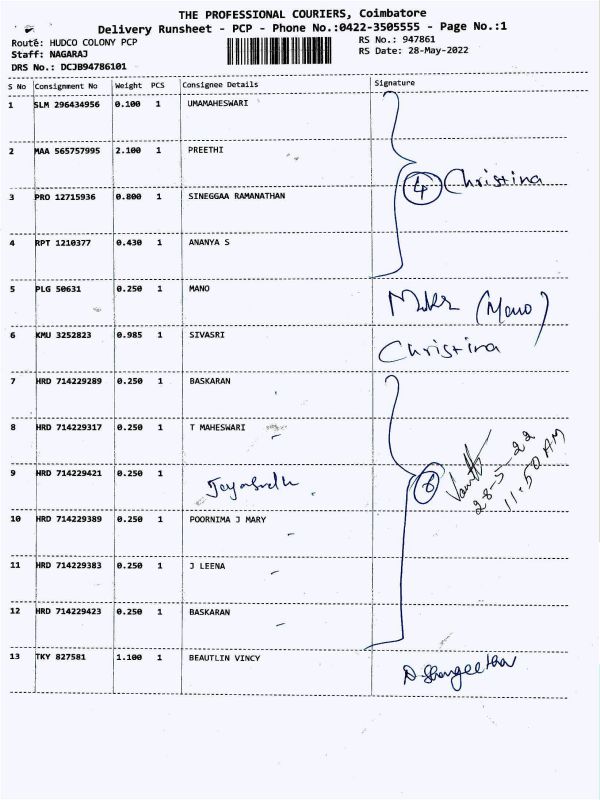 THE PROFESSIONAL COURIERS, Coimbatore
Delivery Runsheet - PCP - Phone No.:0422-3505555 - Page No.:1
Route: HUDCO COLONY PCP
RS No.: 947861
Staff: NAGARAJ
RS Date: 28-May-2022
DRS No.: DCJB94786101
S No Consignment No Weight PCS Consignee Details Signature
1 SLM 296434956 0.100 1 UMAMAHESWARI
2 MAA 565757995 2.100 1 PREETHI
4 Christina
3 PRO 12715936 0.800 1 SINEGGAA RAMANATHAN
4 RPT 1210377 0.430 1 ANANYA S
5 PLG 50631 0.250 1 MANO (Mano)
6 KMU 3252823 0.985 1 SIVASRI Christina
7 HRD 714229289 0.250 1 BASKARAN
8 HRD 714229317 0.250 1 T MAHESWARI
9 HRD 714229421 0.250 1 Jayasudha
6 28-5-22
11.50 AM
10 HRD 714229389 0.250 1 POORNIMA J MARY
11 HRD 714229383 0.250 1 J LEENA
12 HRD 714229423 0.250 1 BASKARAN
13 TKY 827581 1.100 1 BEAUTLIN VINCY D. Shangeetha